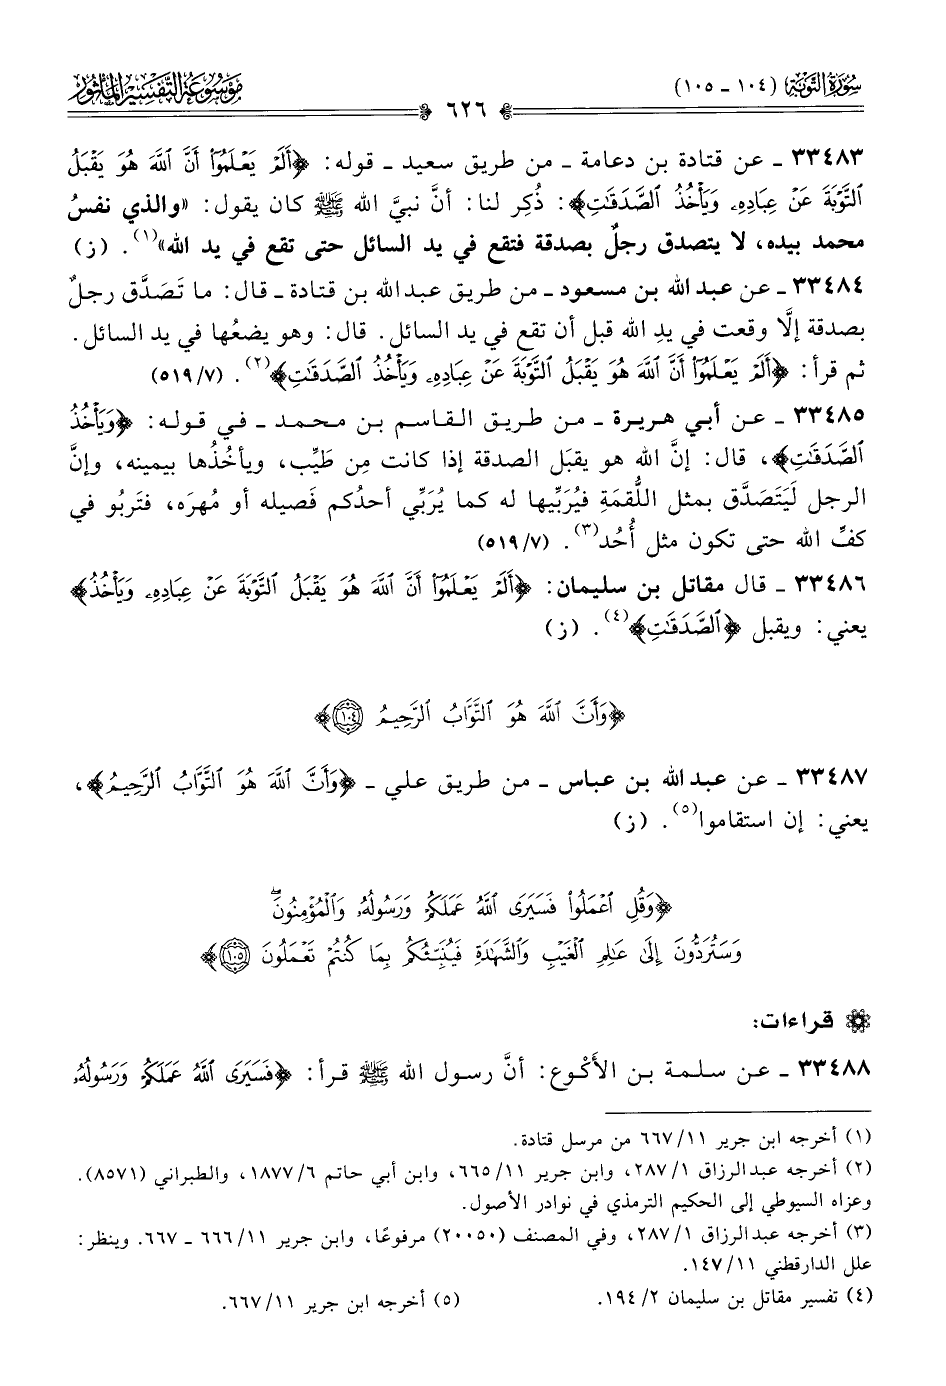 سورة التوبة (١٠٤ - ١٠٥)
٦٢٦
موسوعة التفسير المأثور
٣٣٤٨٣ - عن قتادة بن دعامة - من طريق سعيد - قوله: ﴿أَلَمْ يَعْلَمُوا أَنَّ اللَّهَ هُوَ يَقْبَلُ
التَّوْبَةَ عَنْ عِبَادِهِ وَيَأْخُذُ الصَّدَقَاتِ﴾: ذُكِر لنا: أنَّ نبيَّ الله ﷺ كان يقول: «والذي نفسُ
محمد بيده، لا يتصدق رجلٌ بصدقة فتقع في يد السائل حتى تقع في يد الله»(١). (ز)
٣٣٤٨٤ - عن عبد الله بن مسعود - من طريق عبد الله بن قتادة - قال: ما تَصَدَّق رجلٌ
بصدقة إلَّا وقعت في يدِ الله قبل أن تقع في يد السائل. قال: وهو يضعُها في يد السائل.
ثم قرأ: ﴿أَلَمْ يَعْلَمُوا أَنَّ اللَّهَ هُوَ يَقْبَلُ التَّوْبَةَ عَنْ عِبَادِهِ وَيَأْخُذُ الصَّدَقَاتِ﴾(٢). (٥١٩/٧)
٣٣٤٨٥ - عن أبي هريرة - من طريق القاسم بن محمد - في قوله: ﴿وَيَأْخُذُ
الصَّدَقَاتِ﴾، قال: إنَّ الله هو يقبَل الصدقة إذا كانت مِن طَيِّب، ويأخُذُها بيمينه، وإنَّ
الرجل لَيَتَصَدَّق بمثل اللُّقمَةِ فيُرَبِّيها له كما يُرَبِّي أحدُكم فَصيله أو مُهرَه، فتَربُو في
كفِّ الله حتى تكون مثل أُحُد(٣). (٥١٩/٧)
٣٣٤٨٦ - قال مقاتل بن سليمان: ﴿أَلَمْ يَعْلَمُوا أَنَّ اللَّهَ هُوَ يَقْبَلُ التَّوْبَةَ عَنْ عِبَادِهِ وَيَأْخُذُ﴾
يعني: ويقبل ﴿الصَّدَقَاتِ﴾(٤). (ز)
﴿وَأَنَّ اللَّهَ هُوَ التَّوَّابُ الرَّحِيمُ ١٠٤﴾
٣٣٤٨٧ - عن عبد الله بن عباس - من طريق علي - ﴿وَأَنَّ اللَّهَ هُوَ التَّوَّابُ الرَّحِيمُ﴾،
يعني: إن استقاموا(٥). (ز)
﴿وَقُلِ اعْمَلُوا فَسَيَرَى اللَّهُ عَمَلَكُمْ وَرَسُولُهُ وَالْمُؤْمِنُونَ ۖ
وَسَتُرَدُّونَ إِلَى عَالِمِ الْغَيْبِ وَالشَّهَادَةِ فَيُنَبِّئُكُم بِمَا كُنتُمْ تَعْمَلُونَ ١٠٥﴾
قراءات:
٣٣٤٨٨ - عن سلمة بن الأَكْوع: أنَّ رسول الله ﷺ قرأ: ﴿فَسَيَرَى اللَّهُ عَمَلَكُمْ وَرَسُولُهُ
(١) أخرجه ابن جرير ٦٦٧/١١ من مرسل قتادة.
(٢) أخرجه عبد الرزاق ٢٨٧/١، وابن جرير ٦٦٥/١١، وابن أبي حاتم ١٨٧٧/٦، والطبراني (٨٥٧١).
وعزاه السيوطي إلى الحكيم الترمذي في نوادر الأصول.
(٣) أخرجه عبد الرزاق ٢٨٧/١، وفي المصنف (٢٠٠٥٠) مرفوعًا، وابن جرير ٦٦٦/١١ - ٦٦٧. وينظر:
علل الدارقطني ١٤٧/١١.
(٤) تفسير مقاتل بن سليمان ١٩٤/٢. (٥) أخرجه ابن جرير ٦٦٧/١١.